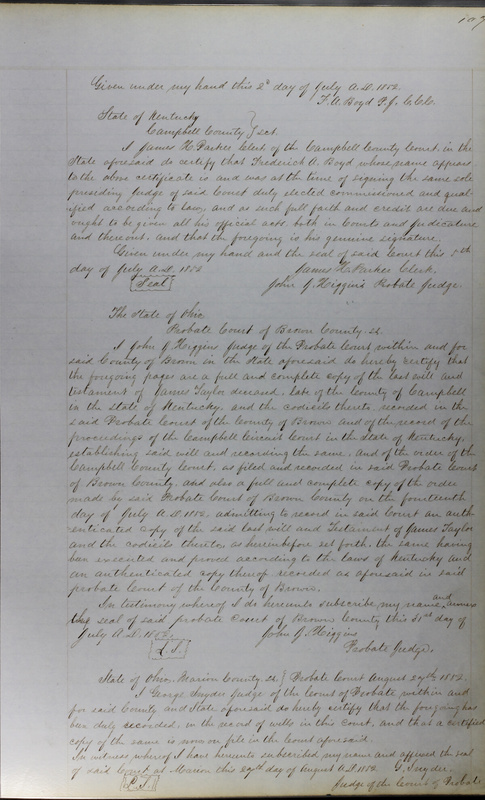 107
Given under my hand this 2d day of July A.D. 1852.
F. A. Boyd P.J. C.C.C.
State of Kentucky
Campbell County } sct.
I James H. Parker Clerk of the Campbell County Court, in the
State aforesaid do certify that Frederick A. Boyd whose name appears
to the above certificate is and was at the time of signing the same sole
presiding Judge of said Court duly elected commissioned and qual-
ified according to law, and as such full faith and credit are due and
ought to be given all his official acts both in Courts and Judicature
and thereout. And that the foregoing is his genuine signature.
Given under my hand and the seal of said Court this 5th
day of July A.D. 1852
James H. Parker Clerk.
Seal
John J. Higgins Probate Judge.
The State of Ohio
Probate Court of Brown County. ss.
I John J. Higgins Judge of the Probate Court, within and for
said County of Brown in the State aforesaid do hereby certify that
the foregoing pages are a full and complete copy of the last will and
testament of James Taylor deceased, late of the County of Campbell
in the State of Kentucky, and the codicils thereto recorded in the
said Probate Court of the County of Brown and of the record of the
proceedings of the Campbell Circuit Court in the State of Kentucky,
establishing said will and recording the same. And of the order of the
Campbell County Court, as filed and recorded in said Probate Court
of Brown County, and also a full and complete copy of the order
made by said Probate Court of Brown County on the fourteenth
day of July A.D. 1852. admitting to record in said Court an auth-
enticated copy of the said last will and Testament of James Taylor
and the codicils thereto, as hereinbefore set forth. the same having
been executed and proved according to the laws of Kentucky and
an authenticated copy thereof recorded as aforesaid in said
probate Court of the County of Brown.
In testimony whereof I do hereunto subscribe my name and annex
the seal of said probate Court of Brown County this 31st day of
July A.D. 1852.
John J. Higgins
L.S.
Probate Judge.
State of Ohio, Marion County. ss } Probate Court August 29th, 1852.
I George Snyder Judge of the Court of Probate within and
for said County and State aforesaid do hereby certify that the foregoing has
been duly recorded, in the record of wills in this Court, and that a certified
copy of the same is now on file in the Court aforesaid.
In witness whereof I have hereunto subscribed my name and affixed the seal
of said Court, at Marion this 29th day of August A.D. 1852. G. Snyder.
L.S.
Judge of the Court of Probate